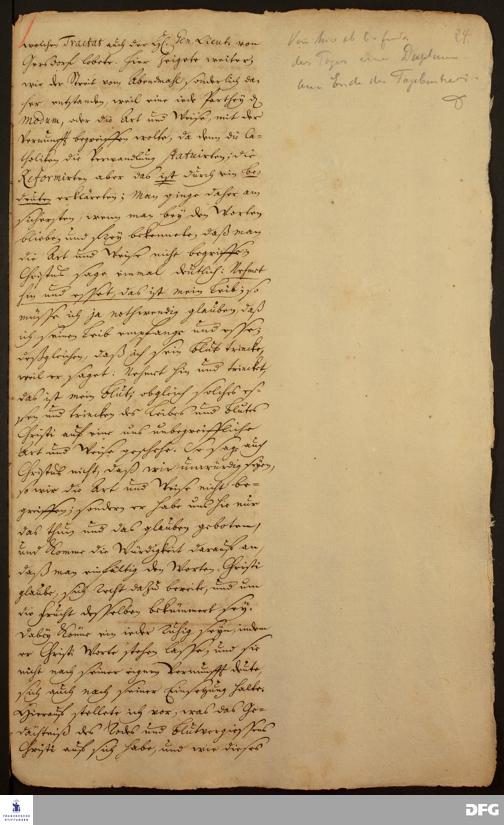 welchen Tractat auch der H. Gen. Lieut. von
Gersdorf lobete. Hier zeigete weiter,
wie der Streit vom Abendmahl, sonderlich da-
her entstanden, weil eine jede Parthey den
Modum, oder die Art und Weise, mit der
Vernunfft begreiffen wolte, da denn die Ca-
tholiken die Verwandlung statuirten; die
Reformirten aber das ist durch ein be-
deuten erkläreten; Man ginge daher am
sichersten, wenn man bey den Worten
bliebe, und frey bekennete, daß man
die Art und Weise nicht begriffe.
Christus sage einmal deutlich: Nehmet
hin und esset, das ist mein Leib; so
müsse ich ja nothwendig glauben, daß
ich seinen Leib empfange und esse;
deßgleichen, daß ich sein Blut trincke,
weil er saget: Nehmet hin und trincket,
das ist mein Blut; obgleich solches es-
sen und trincken des Leibes und Blutes
Christi auf eine uns unbegreiffliche
Art und Weise geschehe. Es sage auch
Christus nicht, daß wir unwürdig seyn,
so wir die Art und Weise nicht be-
greiffen; sondern er habe uns hie nur
das thun und das glauben geboten,
und komme die Würdigkeit darauf an,
daß man einfältig den Worten Christi
glaube, sich recht dazu bereite, und um
die Frucht desselben bekümmert sey.
Dabey könne ein jeder ruhig seyn, indem
er Christi Worte stehen lasse, und sie
nicht nach seiner eigenen Vernunfft deute,
sich auch nach seiner Einsetzung halte.
Hierauf stellete ich vor, was das Ge-
dächtniß des Todes und Blutvergiessens
Christi auf sich habe, und wie dieses
24.
Von hier ab befindet
des Tages eine Duplum
am Ende des
FRANCKESCHE
STIFTUNGEN
DFG